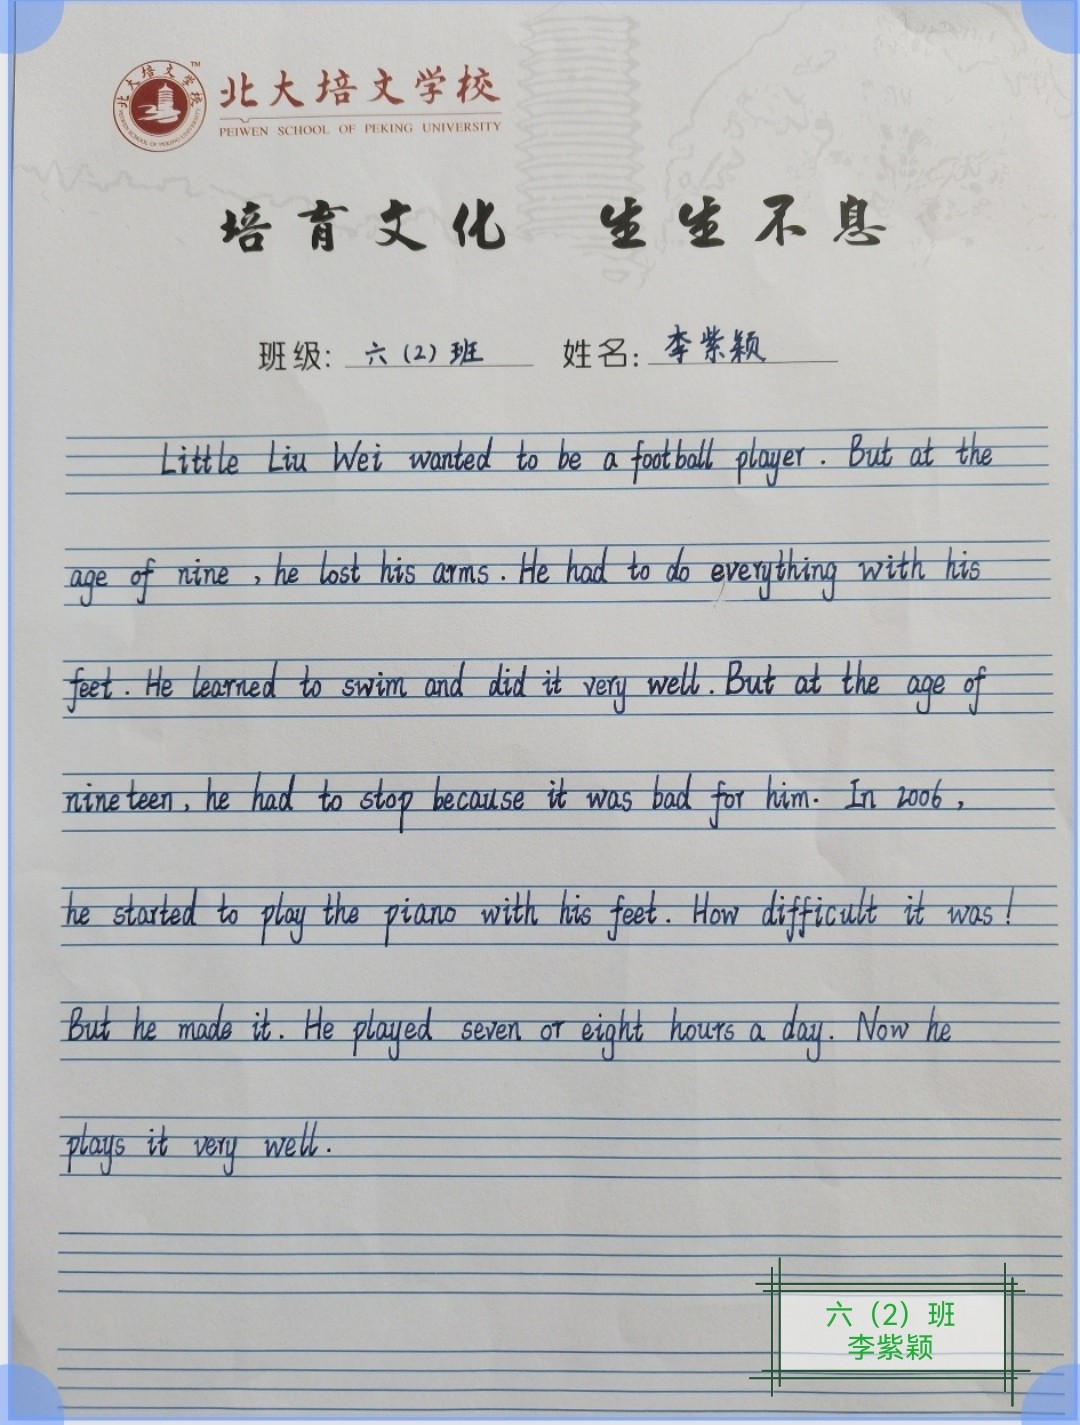 北大培文学校
PEIWEN SCHOOL OF PEKING UNIVERSITY
培育文化 生生不息
班级: 六(2)班 姓名: 李紫颖
Little Liu Wei wanted to be a football player. But at the
age of nine, he lost his arms. He had to do everything with his
feet. He learned to swim and did it very well. But at the age of
nineteen, he had to stop because it was bad for him. In 2006,
he started to play the piano with his feet. How difficult it was!
But he made it. He played seven or eight hours a day. Now he
plays it very well.
六（2）班
李紫颖